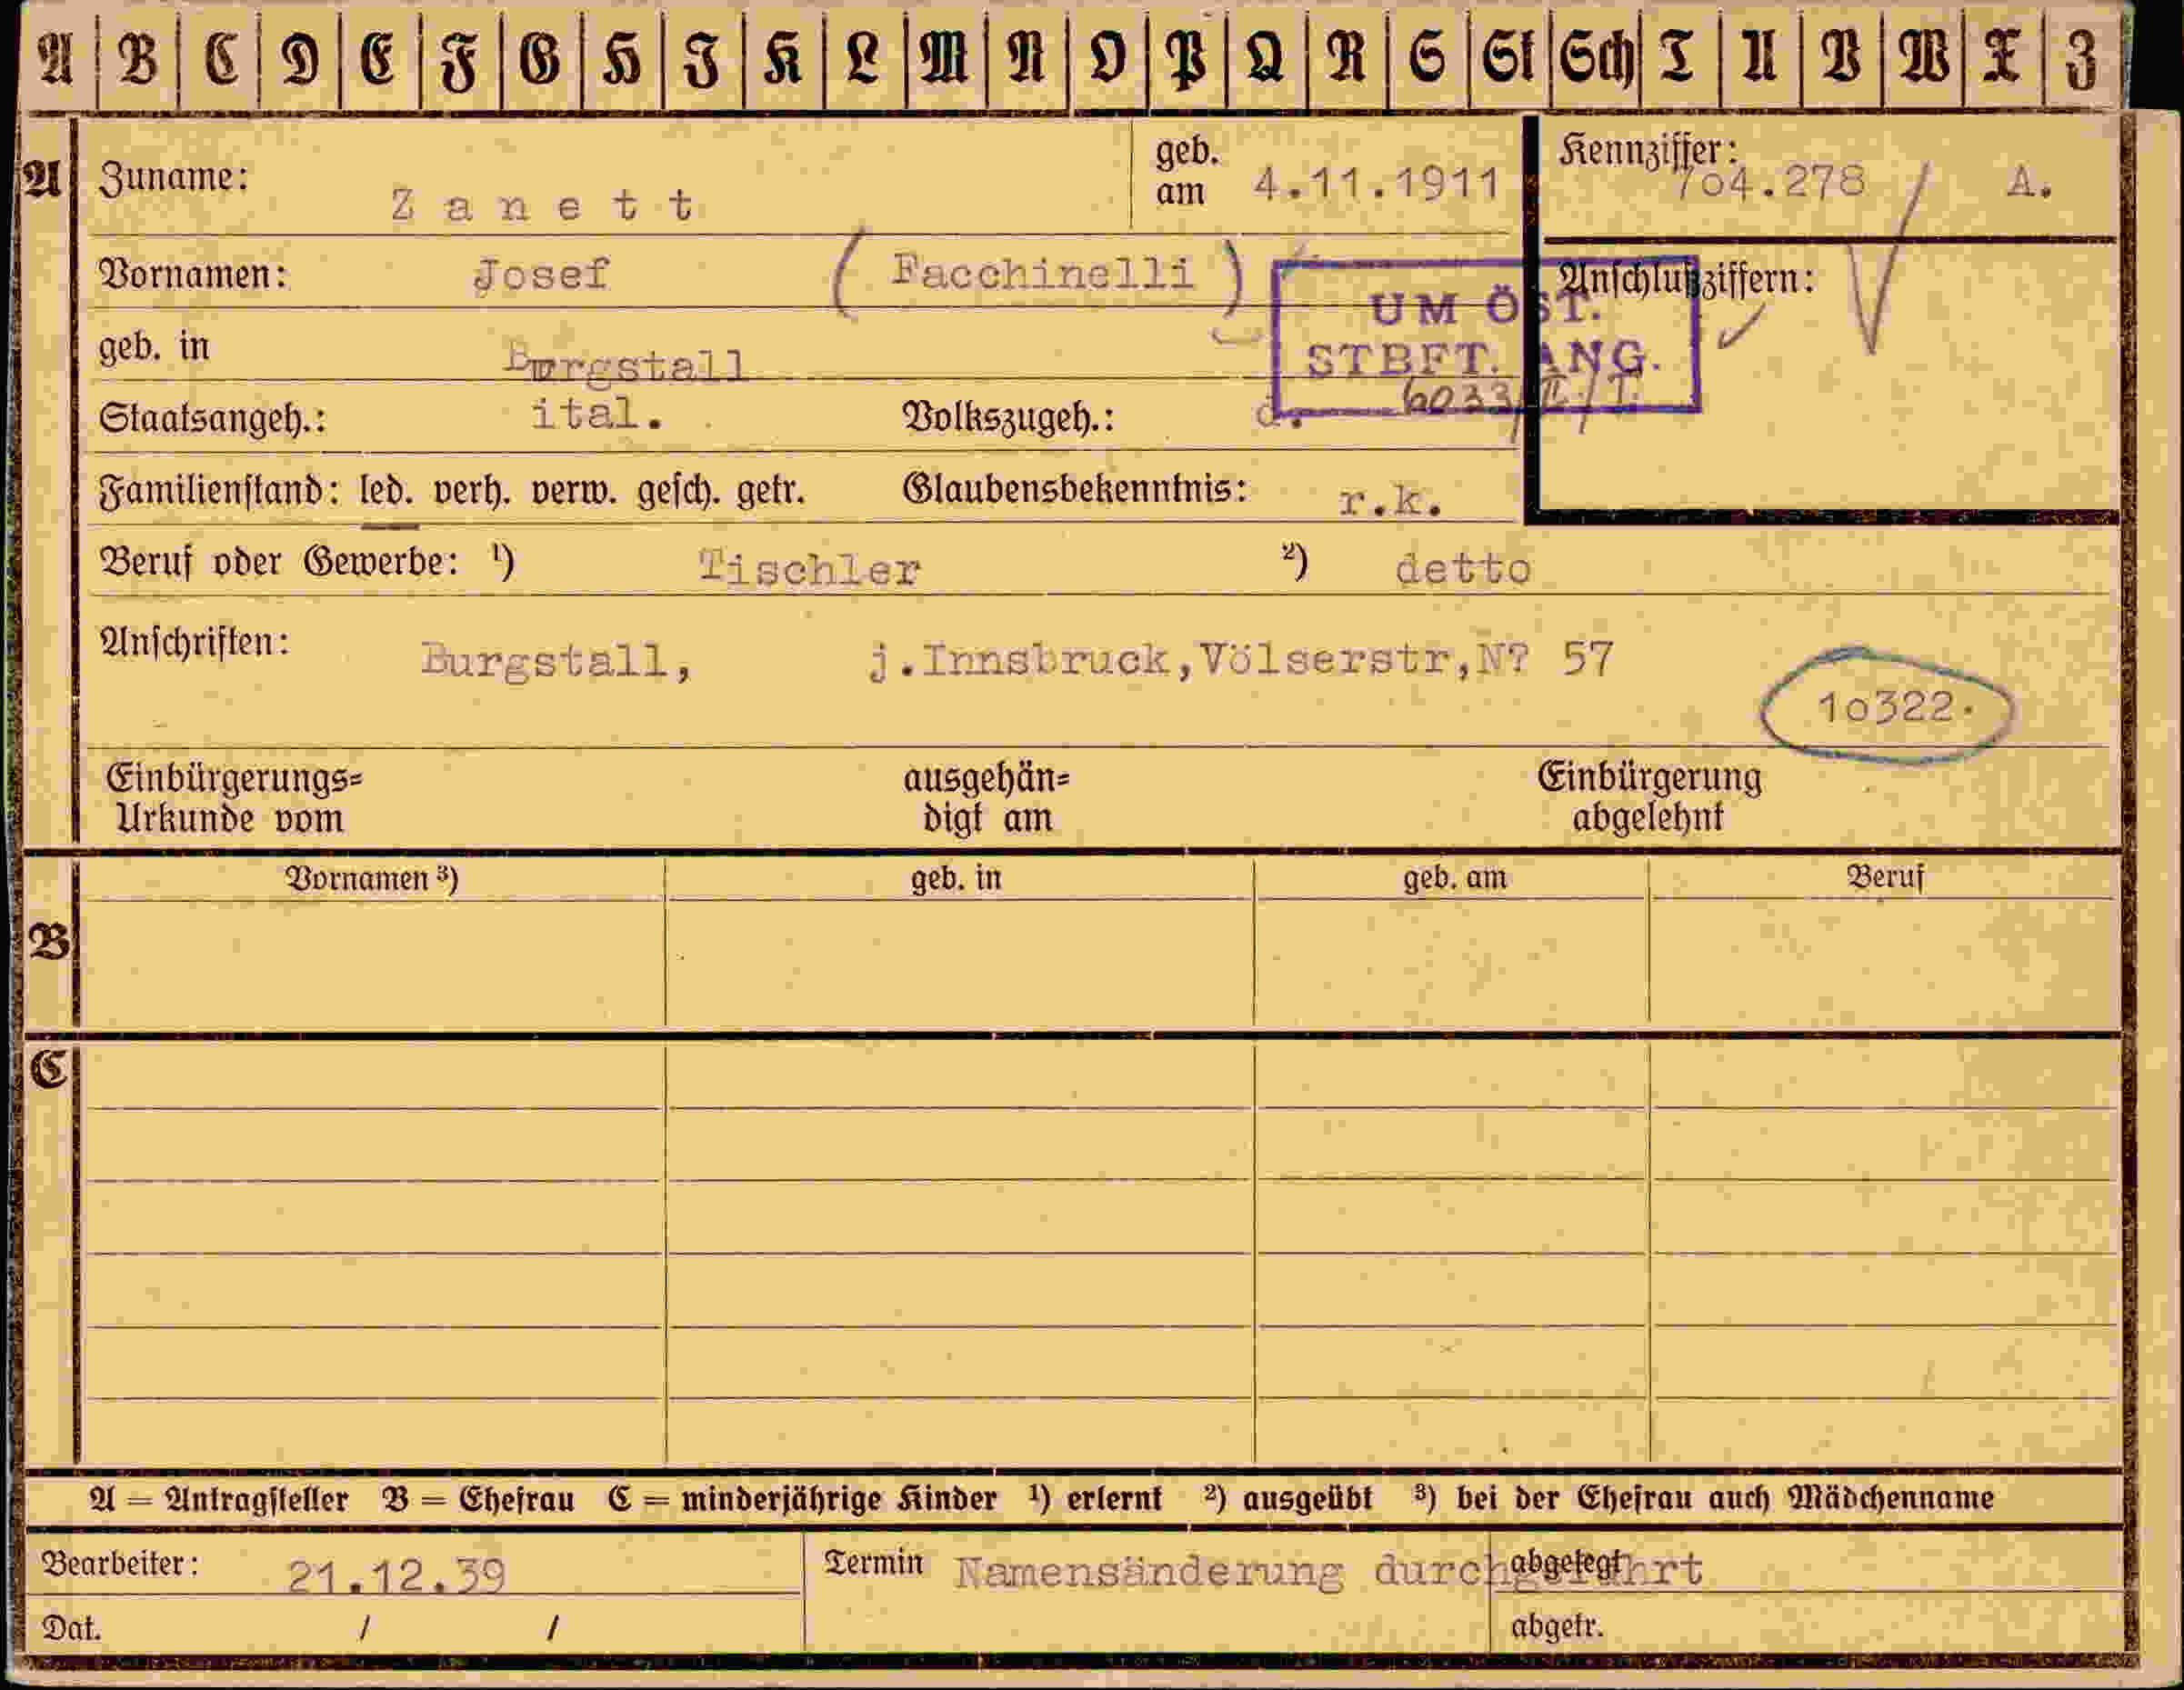 A B C D E F G H I K L M N O P Q R S St Sch T U V W X Z
A Zuname: Zanett geb. am 4.11.1911 Kennziffer: 704.278 A.
Vornamen: Josef ( Facchinelli ) Anschlußziffern:
UM ÖST.
STBFT. ANG.
6033/II/I.
geb. in Burgstall
Staatsangeh.: ital. Volkszugeh.: d.
Familienstand: led. verh. verw. gesch. getr. Glaubensbekenntnis: r.k.
Beruf oder Gewerbe: ¹) Tischler ²) detto
Anschriften: Burgstall, j.Innsbruck,Völserstr,N? 57
10322.
Einbürgerungs= ausgehän= Einbürgerung
Urkunde vom digt am abgelehnt
Vornamen ³) geb. in geb. am Beruf
B
C
A = Antragsteller B = Ehefrau C = minderjährige Kinder ¹) erlernt ²) ausgeübt ³) bei der Ehefrau auch Mädchenname
Bearbeiter: 21.12.39 Termin Namensänderung durchgeführt abgelegt
Dat. / / abgetr.